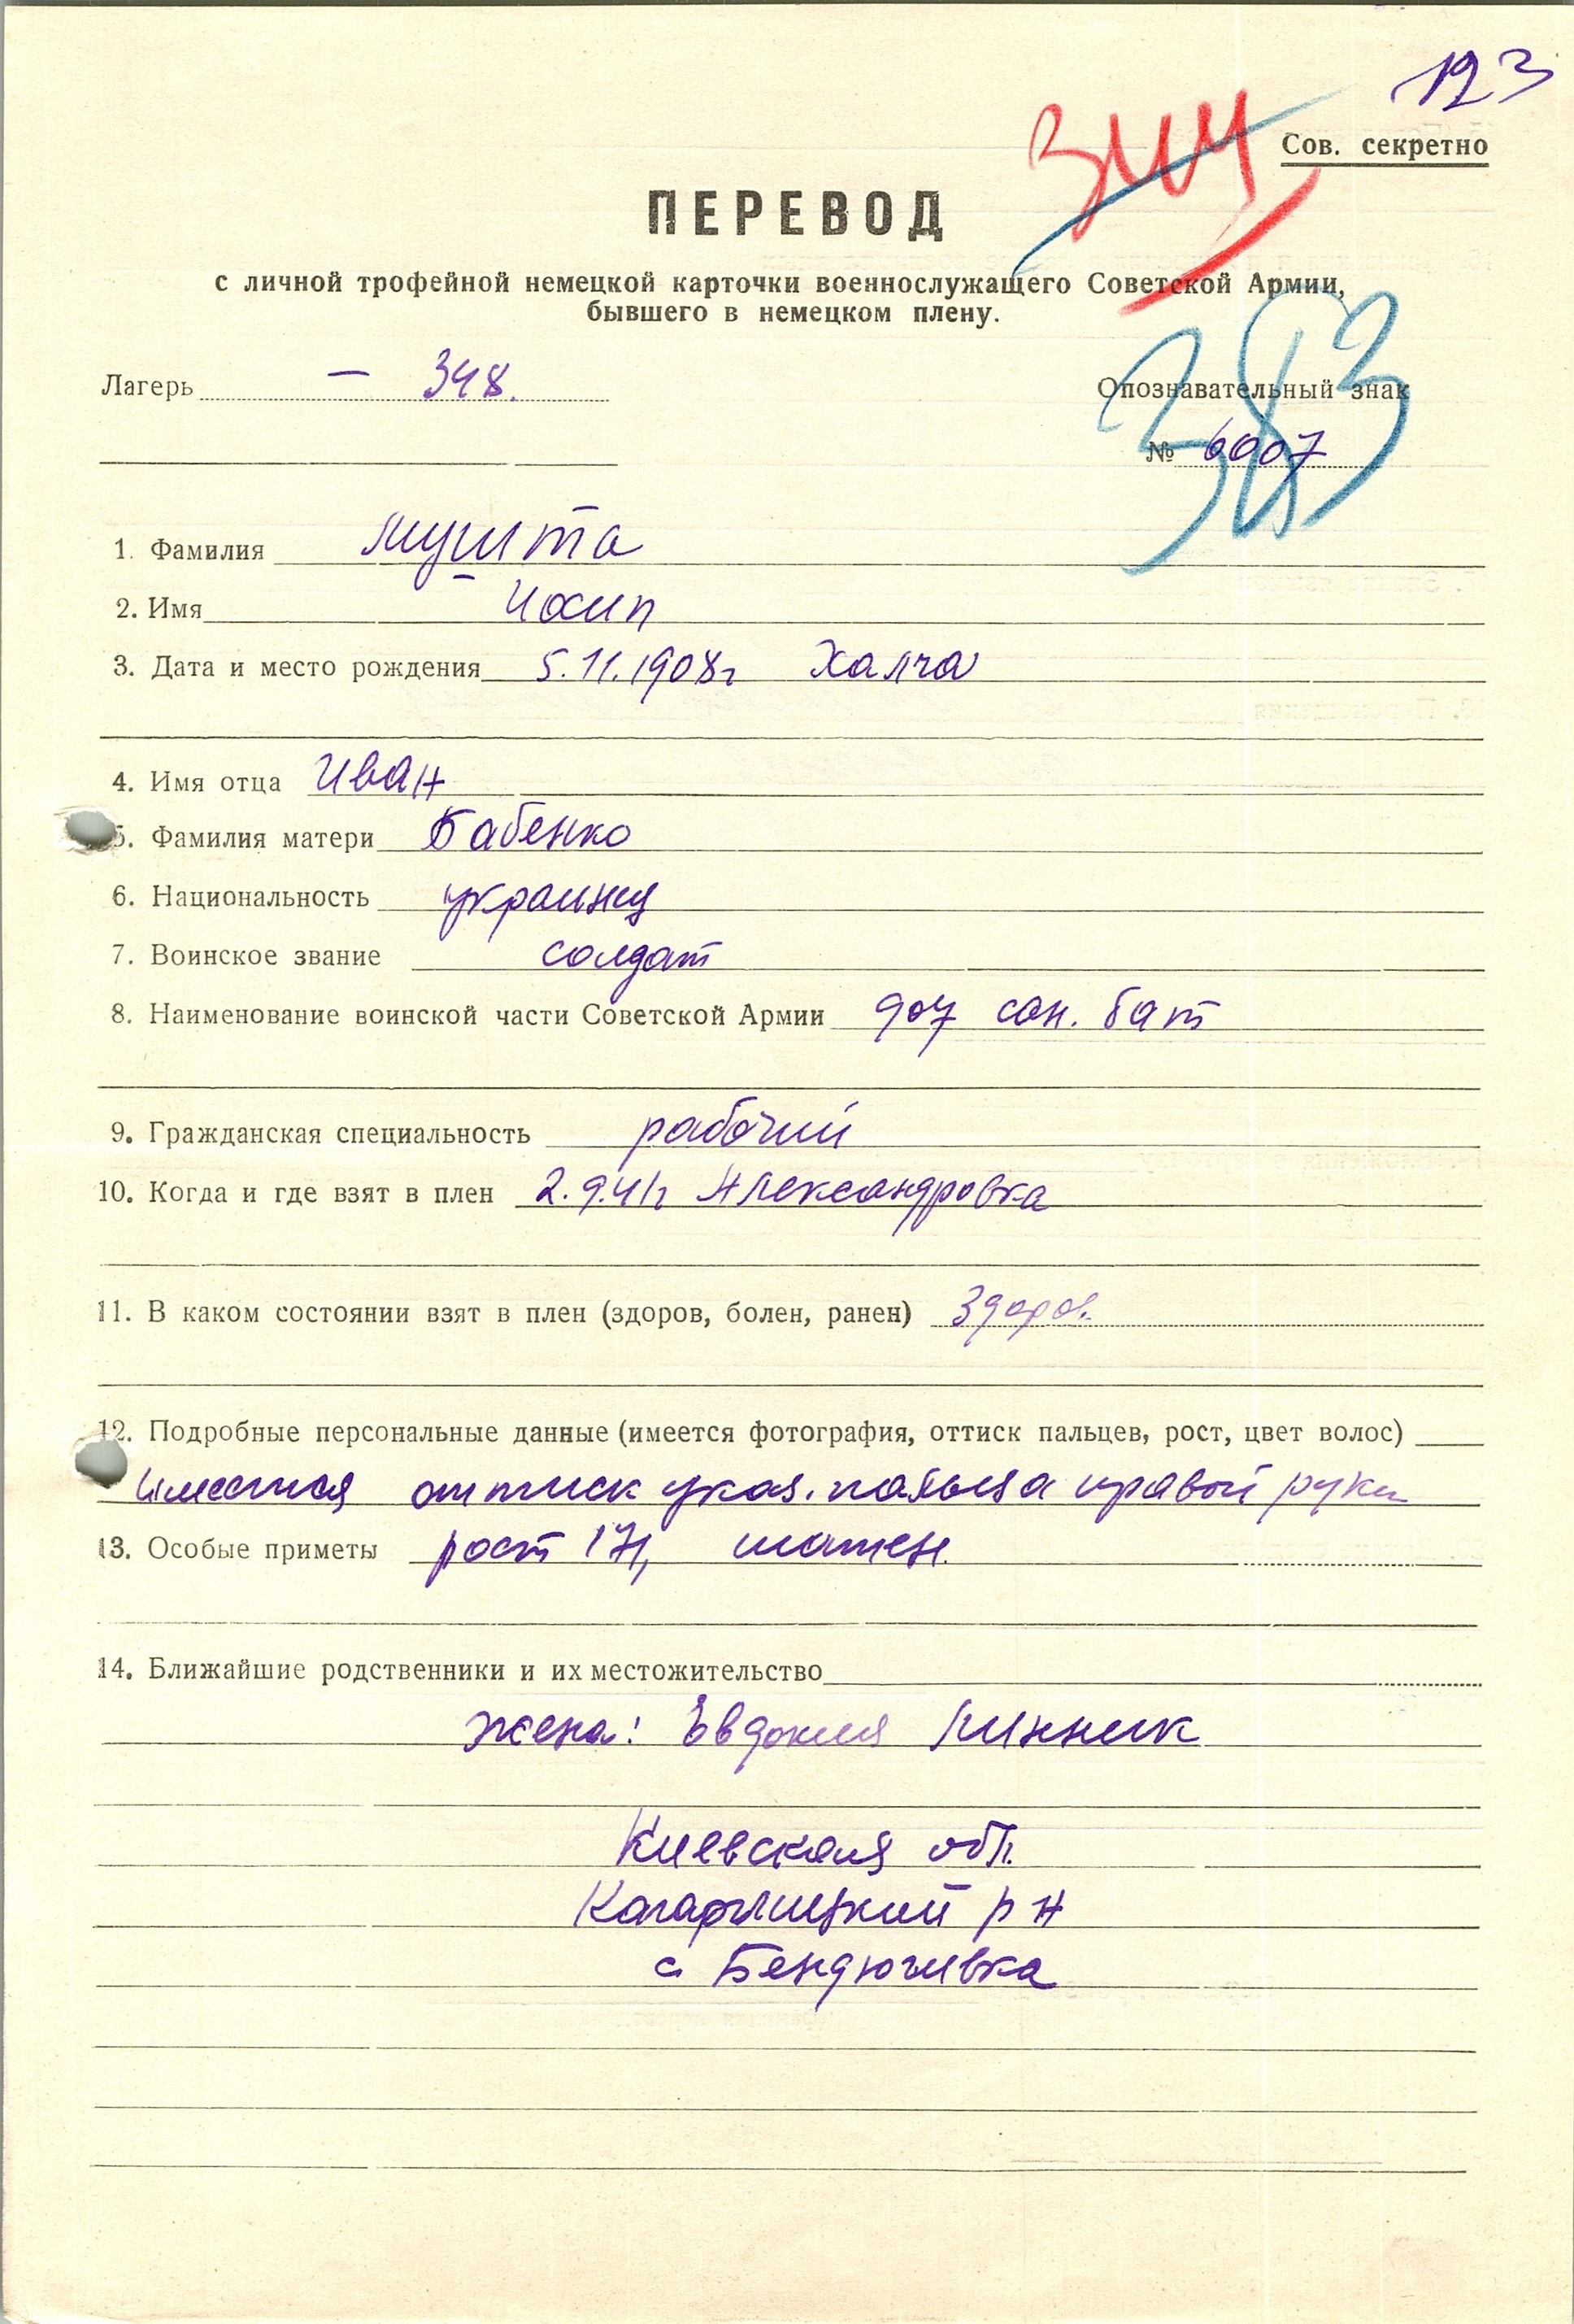 123
344
Сов. секретно
ПЕРЕВОД
с личной трофейной немецкой карточки военнослужащего Советской Армии,
бывшего в немецком плену.
Лагерь — 348.
Опознавательный знак
383
№ 6007
1. Фамилия Мушта
2. Имя Иосип
3. Дата и место рождения 5.11.1908г Халча
4. Имя отца Иван
5. Фамилия матери Бабенко
6. Национальность украинец
7. Воинское звание солдат
8. Наименование воинской части Советской Армии 907 сан. бат
9. Гражданская специальность рабочий
10. Когда и где взят в плен 2.9.41г Александровка
11. В каком состоянии взят в плен (здоров, болен, ранен) здоров.
12. Подробные персональные данные (имеется фотография, оттиск пальцев, рост, цвет волос)
имеется оттиск указ. пальца правой руки
13. Особые приметы рост 171, шатен.
14. Ближайшие родственники и их местожительство
жена: Евдокия Минник
Киевская обл.
Кагарлицкий р н
с Бендюгивка